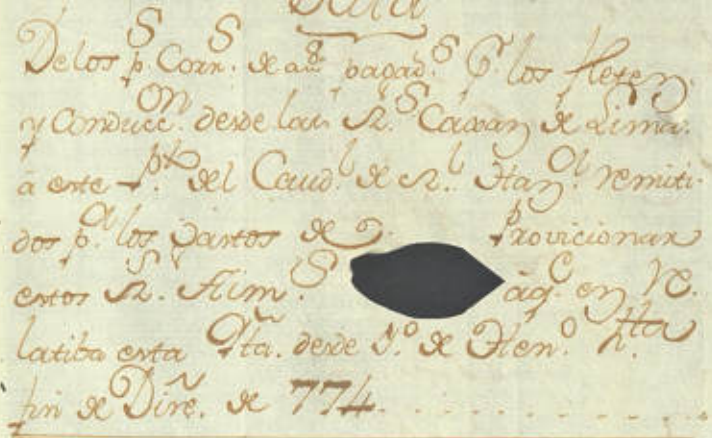 Data
De los p.s Corr.s de a ocho pagad.s p.r los fletes
y conducc.on desde las R.s Caxas de Lima
a este p.to del Caud.l de R.l Haz.da remiti-
dos p.a los gastos de provicionar
estos R.s Alm.s aq.e en re-
latiba esta q.ta desde 1.o de Hen.o h.ta
fin de Dire. de 774